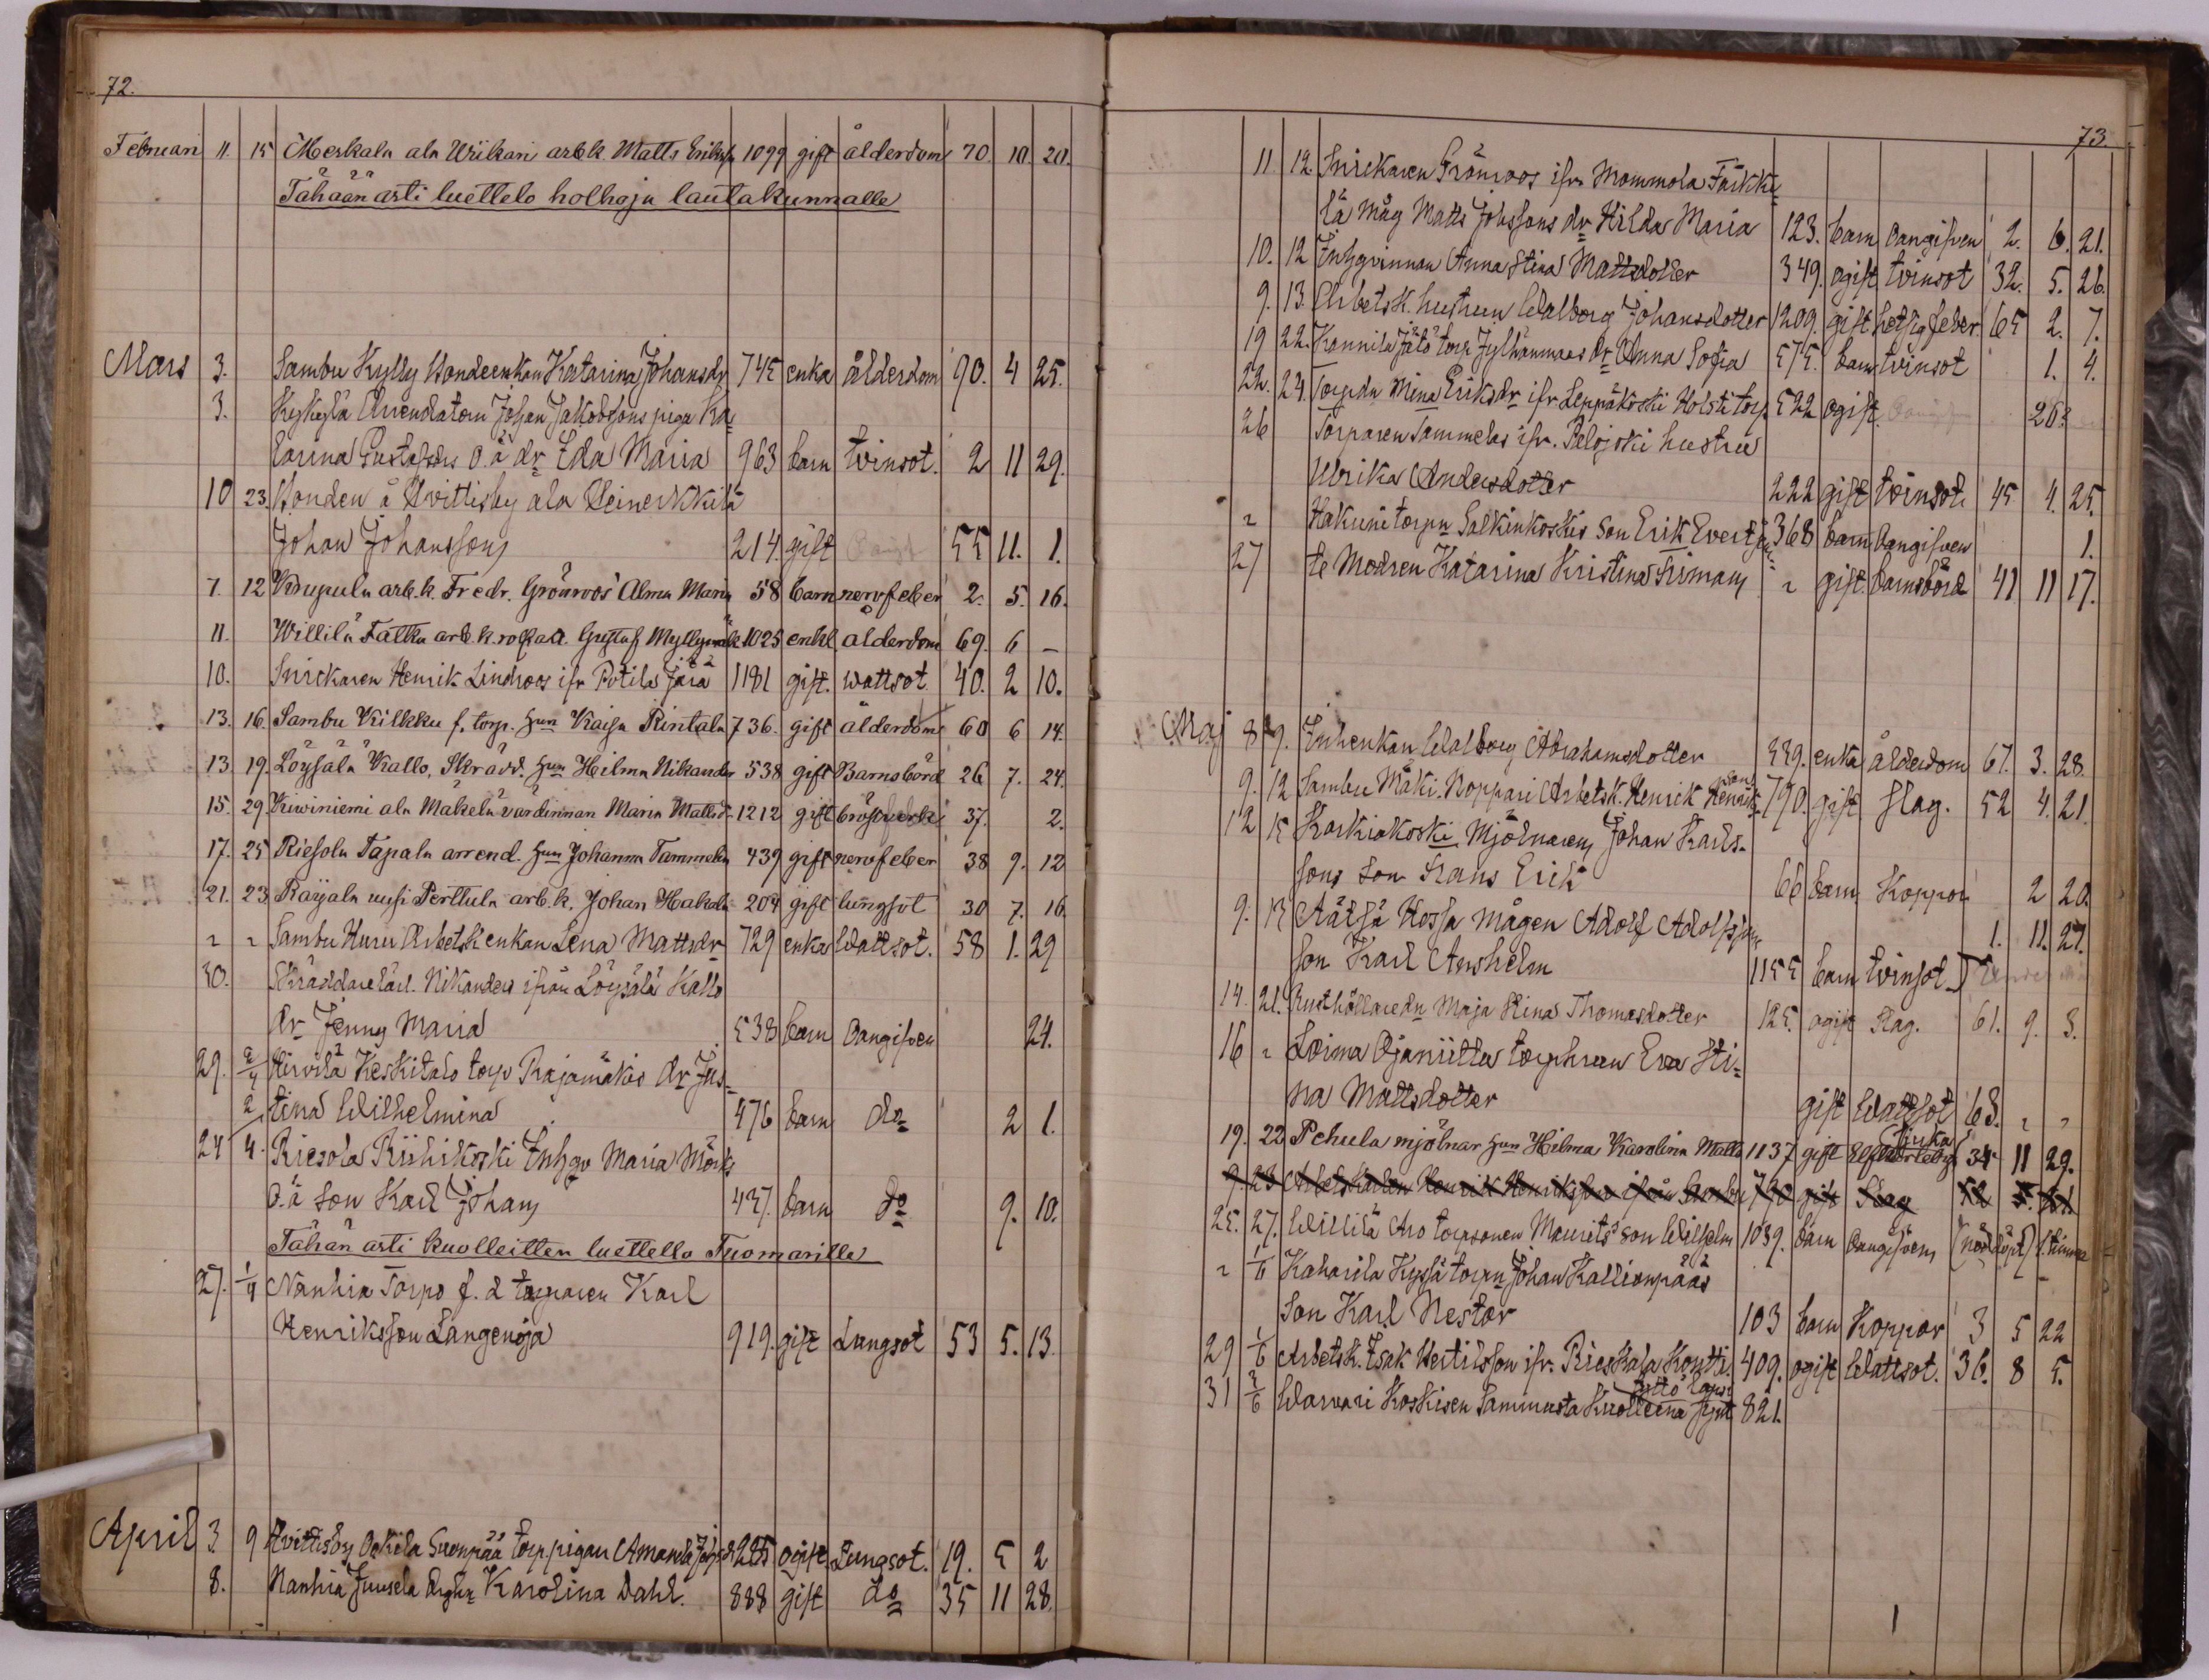 72.
Februari 11. 15 Meskala ala Urikari arb.k. Matts Eriks. 1099 gift ålderdom 70. 10. 20.
Tähään asti luettelo holhoja lautakunnalle
Mars 3. Sambu Kylly Hondeenkan Katarina Johansdr 745 enka ålderdom 90. 4 25.
3. Arrendatorn Johan Jakobssons piga Ka=
tarina o.ä dr Ida Maria 963 barn tvinsot. 2 11 29.
10 23. Honden å Hvittisby ala Heinerkkilä
Johan Johansson 214. gift 55 11. 1.
7. 12 Krupula arb.k. Fredr. Grönroos Alma Maria 58 barn nervfeber 2. 5. 16.
11. Willilä Tattu arb.k. Gustaf 1025 enkl. ålderdom 69. 6 –
10. Snickaren Henrik Lindroos ifr Potila Järä 1181 gift. wattsot 40. 2 10.
13. 16. Sambu Kilkku f. torp. hun Kaisa Rintala 736. gift ålderdom 60 6 14.
13 19. Löysälä Kallo, Skrädd. hun Hilma Nikander 538 gift Barnsbörd 26 7. 24.
15. 29. Kiviniemi ala Mäkelä värdinnan Maria Mattsd. 1212 gift 37. 2.
17. 25 Riesola Tapala arrend. hun Johanna Tammela 439 gift nervfeber 38 9. 12
21. 23 Raijala uusi Perttula arb.k. Johan Hakala 204 gift lungsot 30 7. 16.
" " Sambu Huru Arbetsk.enkan Lena Mattsdr 729 enka Wattsot. 58 1. 29
30. Nikanders ifrån Löysälä Kallo
dr Jenny Maria 538 barn Oangifven 24.
29. 2/4 Hirvilä Keskitalo torp Rajamäkis dr Jus=
tina Wilhelmina 476 barn do 2 1.
24 2/4. Riesola Riihikoski Inhqv Maria
o.ä son Karl Johan 437. barn do 9. 10.
Tähän asti kuolleitten luettello Tuomarille
27. 1/4 Nanhia Torpo f.d torparen Karl
Henriksson Langenoja 919. gift Lungsot 53 5. 13.
April 3 9 Hvittisby Ookila Suonpää torp pigan Amanda 225 ogift Lungsot. 19. 5 2
8. Nanhia Juusela Karolina Dahl. 888 gift do 35 11 28.
73.
11. 12. Snickaren Grönroos ifr. Mommola Färkki=
lä måg Matts Johssons dr Hilda Maria 123. barn oangifven 2. 6. 21.
10. 12 Inhqvinnan Anna Stina Mattsdotter 349. ogift tvinsot 32. 5. 26.
9. 13. Arbetsk. hustrun Walborg Johansdotter 1209. gift hetsig feber 65 2. 7.
19 22. Kannila Jätö torp Jylhänmaas dr Anna Sofia 575. barn tvinsot 1. 4.
22. 24. Torpdn Mina Eriksdr ifr Leppäkoski Holsti torp 522 ogift. 26.
26 Torparen Sammelas ifr. Palojoki hustru
Ulrika Andersdotter 222 gift tvinsot. 45 4. 25.
" Hakuni torpn Salkinkoskis son Erik Evert 368 barn Oangifven 1.
27 te Modren Katarina Kristina " gift. barnsbörd 41 11 17.
Maj 8 9. Inhenkan Walborg Abrahamsdotter 339. enka ålderdom 67. 3. 28.
9. 12 Sambu Mäki-Noppari Arbetsk. Henrik Henriksson 790. gift slag. 52 4. 21.
12 15 Karkiakoski Mjölnaren Johan Karls-
sons son Frans Erik 66 barn Koppor 2 20.
9. 15 Äätsä Hossa mågen Adolf Adolfsson 1. 11. 27.
son Karl Anshelm 1155 barn tvinsot.
14. 21. Rusthållaredn Maja Stina Thomasdotter 125. ogift Slag. 61. 9. 3.
16 " Loima Ojaniittu torphrun Eva Sti=
na Mattsdotter gift Wattsot 63. " "
19. 22 Pehula mjölnar hun Hilma Karolina Matts 1137 gift 34 11 29.
9. 23 Arbetskarlen Henrik Henriksson ifrån Sambu 790 gift Slag 52
25. 27. Willilä Aro torpsonen Maurits' son Wilhelm 1039. barn Oangifven (nöddöpt) 1. timma
" 1/6 Kaharila Kyssä torpn Johan Kallionpääs –
son Karl Nestor 103 barn Koppor 3 5 22
29 1/6 Arbetsk. Isak Hertilsson ifr. Rieskala Kontti. 409. ogift Wattsot. 36. 8 5.
tyttö lapsi
31 2/6 Warvari Koskisen Sammusta Kuolleena synt 821.